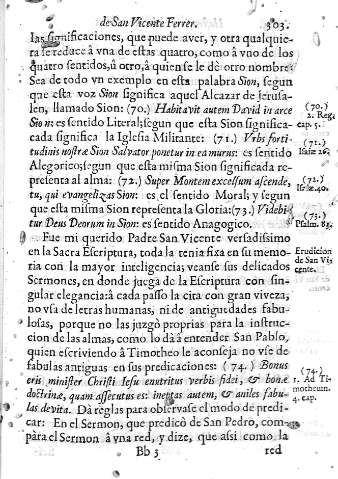 de San Vicente Ferrer. 303.
las significaciones, que puede aver, y otra qualquiera
se reduce à vna de estas quatro, como à vno de los
quatro sentidos, ù otro, à quien se le dè otro nombre.
Sea de todo vn exemplo en esta palabra Sion, segun
que esta voz Sion significa aquel Alcazar de Jerusa-
len, llamado Sion: (70.) Habitavit autem David in arce
Sion: es sentido Literal; segun que esta Sion significa-
cada significa la Iglesia Militante: (71.) Vrbs forti-
tudinis nostræ Sion Salvator ponetur in ea murus: es sentido
Alegorico; segun que esta misma Sion significada re-
presenta al alma: (72.) Super Montem excelsum ascende,
tu, qui evangelizas Sion: es el sentido Moral; y segun
que esta misma Sion representa la Gloria: (73.) Videbi-
tur Deus Deorum in Sion: es sentido Anagogico.
Fue mi querido Padre San Vicente versadissimo
en la Sacra Escriptura, toda la tenia fixa en su memo-
ria con la mayor inteligencia; veanse sus delicados
Sermones, en donde juega de la Escriptura con sin-
gular elegancia: à cada passo la cita con gran viveza,
no vsa de letras humanas, ni de antiguedades fabu-
losas, porque no las juzgò proprias para la instruc-
cion de las almas, como lo dà à entender San Pablo,
quien escriviendo à Timotheo le aconseja no vse de
fabulas antiguas en sus predicaciones: (74.) Bonus
eris minister Christi Iesu enutritus verbis fidei, & bonæ
doctrinæ, quam assecutus es: ineptas autem, & aniles fabu-
las devita. Dà reglas para observarse el modo de predi-
car: En el Sermon, que predicò de San Pedro, com-
pàra el Sermon à vna red, y dize, que assi como la
Bb 3 red
(70.)
2. Reg.
cap. 5.
(71.)
Isaiæ 26.
(72.)
Isaiæ 40.
(73.)
Psalm. 83.
Erudicion
de San Vi-
cente.
(74.)
1. Ad Ti-
motheum.
4. cap.